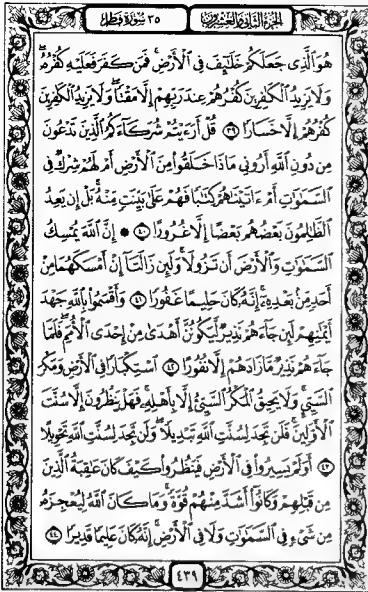 الجزء الثاني والعشرون
٣٥ سورة فاطر
هُوَ ٱلَّذِى جَعَلَكُمْ خَلَٰٓئِفَ فِى ٱلْأَرْضِ ۚ فَمَن كَفَرَ فَعَلَيْهِ كُفْرُهُۥ ۖ
وَلَا يَزِيدُ ٱلْكَٰفِرِينَ كُفْرُهُمْ عِندَ رَبِّهِمْ إِلَّا مَقْتًا ۖ وَلَا يَزِيدُ ٱلْكَٰفِرِينَ
كُفْرُهُمْ إِلَّا خَسَارًا ٣٩ قُلْ أَرَءَيْتُمْ شُرَكَآءَكُمُ ٱلَّذِينَ تَدْعُونَ
مِن دُونِ ٱللَّهِ أَرُونِى مَاذَا خَلَقُوا۟ مِنَ ٱلْأَرْضِ أَمْ لَهُمْ شِرْكٌ فِى
ٱلسَّمَٰوَٰتِ أَمْ ءَاتَيْنَٰهُمْ كِتَٰبًا فَهُمْ عَلَىٰ بَيِّنَتٍ مِّنْهُ ۚ بَلْ إِن يَعِدُ
ٱلظَّٰلِمُونَ بَعْضُهُم بَعْضًا إِلَّا غُرُورًا ٤٠ ۞ إِنَّ ٱللَّهَ يُمْسِكُ
ٱلسَّمَٰوَٰتِ وَٱلْأَرْضَ أَن تَزُولَا ۚ وَلَئِن زَالَتَآ إِنْ أَمْسَكَهُمَا مِنْ
أَحَدٍ مِّنۢ بَعْدِهِۦٓ ۚ إِنَّهُۥ كَانَ حَلِيمًا غَفُورًا ٤١ وَأَقْسَمُوا۟ بِٱللَّهِ جَهْدَ
أَيْمَٰنِهِمْ لَئِن جَآءَهُمْ نَذِيرٌ لَّيَكُونُنَّ أَهْدَىٰ مِنْ إِحْدَى ٱلْأُمَمِ ۖ فَلَمَّا
جَآءَهُمْ نَذِيرٌ مَّا زَادَهُمْ إِلَّا نُفُورًا ٤٢ ٱسْتِكْبَارًا فِى ٱلْأَرْضِ وَمَكْرَ
ٱلسَّيِّئِ ۚ وَلَا يَحِيقُ ٱلْمَكْرُ ٱلسَّيِّئُ إِلَّا بِأَهْلِهِۦ ۚ فَهَلْ يَنظُرُونَ إِلَّا سُنَّتَ
ٱلْأَوَّلِينَ ۚ فَلَن تَجِدَ لِسُنَّتِ ٱللَّهِ تَبْدِيلًا ۖ وَلَن تَجِدَ لِسُنَّتِ ٱللَّهِ تَحْوِيلًا
٤٣ أَوَلَمْ يَسِيرُوا۟ فِى ٱلْأَرْضِ فَيَنظُرُوا۟ كَيْفَ كَانَ عَٰقِبَةُ ٱلَّذِينَ
مِن قَبْلِهِمْ وَكَانُوٓا۟ أَشَدَّ مِنْهُمْ قُوَّةً ۚ وَمَا كَانَ ٱللَّهُ لِيُعْجِزَهُۥ
مِن شَىْءٍ فِى ٱلسَّمَٰوَٰتِ وَلَا فِى ٱلْأَرْضِ ۚ إِنَّهُۥ كَانَ عَلِيمًا قَدِيرًا ٤٤
٤٣٩